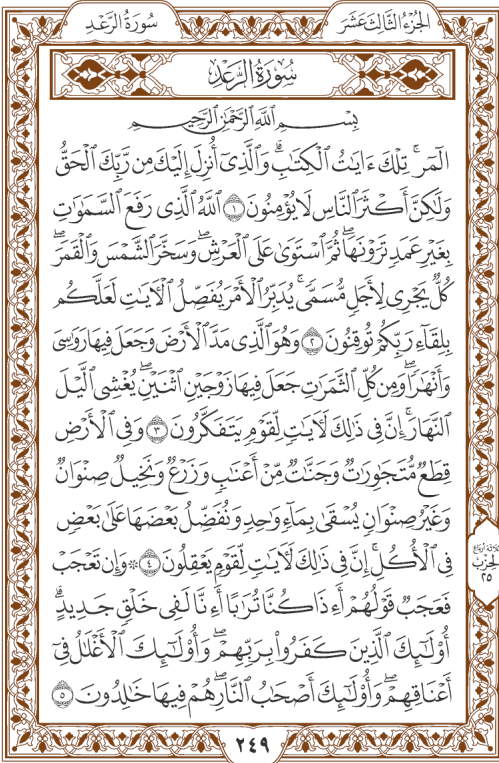 الجزء الثالث عشر
سورة الرعد
سُورَةُ الرَّعْدِ
بِسْمِ اللَّهِ الرَّحْمَٰنِ الرَّحِيمِ
الٓمٓرۚ تِلْكَ ءَايَٰتُ ٱلْكِتَٰبِۗ وَٱلَّذِىٓ أُنزِلَ إِلَيْكَ مِن رَّبِّكَ ٱلْحَقُّ
وَلَٰكِنَّ أَكْثَرَ ٱلنَّاسِ لَا يُؤْمِنُونَ ١ ٱللَّهُ ٱلَّذِى رَفَعَ ٱلسَّمَٰوَٰتِ
بِغَيْرِ عَمَدٍ تَرَوْنَهَاۖ ثُمَّ ٱسْتَوَىٰ عَلَى ٱلْعَرْشِۖ وَسَخَّرَ ٱلشَّمْسَ وَٱلْقَمَرَۖ
كُلٌّ يَجْرِى لِأَجَلٍ مُّسَمًّىۚ يُدَبِّرُ ٱلْأَمْرَ يُفَصِّلُ ٱلْءَايَٰتِ لَعَلَّكُم
بِلِقَآءِ رَبِّكُمْ تُوقِنُونَ ٢ وَهُوَ ٱلَّذِى مَدَّ ٱلْأَرْضَ وَجَعَلَ فِيهَا رَوَٰسِىَ
وَأَنْهَٰرًاۖ وَمِن كُلِّ ٱلثَّمَرَٰتِ جَعَلَ فِيهَا زَوْجَيْنِ ٱثْنَيْنِۖ يُغْشِى ٱلَّيْلَ
ٱلنَّهَارَۚ إِنَّ فِى ذَٰلِكَ لَءَايَٰتٍ لِّقَوْمٍ يَتَفَكَّرُونَ ٣ وَفِى ٱلْأَرْضِ
قِطَعٌ مُّتَجَٰوِرَٰتٌ وَجَنَّٰتٌ مِّنْ أَعْنَٰبٍ وَزَرْعٌ وَنَخِيلٌ صِنْوَانٌ
وَغَيْرُ صِنْوَانٍ يُسْقَىٰ بِمَآءٍ وَٰحِدٍ وَنُفَضِّلُ بَعْضَهَا عَلَىٰ بَعْضٍ
فِى ٱلْأُكُلِۚ إِنَّ فِى ذَٰلِكَ لَءَايَٰتٍ لِّقَوْمٍ يَعْقِلُونَ ٤ ۞ وَإِن تَعْجَبْ
فَعَجَبٌ قَوْلُهُمْ أَءِذَا كُنَّا تُرَٰبًا أَءِنَّا لَفِى خَلْقٍ جَدِيدٍۗ
أُو۟لَٰٓئِكَ ٱلَّذِينَ كَفَرُوا۟ بِرَبِّهِمْۖ وَأُو۟لَٰٓئِكَ ٱلْأَغْلَٰلُ فِىٓ
أَعْنَاقِهِمْۖ وَأُو۟لَٰٓئِكَ أَصْحَٰبُ ٱلنَّارِۖ هُمْ فِيهَا خَٰلِدُونَ ٥
ثلاثة أرباع
الحزب
٢٥
٢٤٩